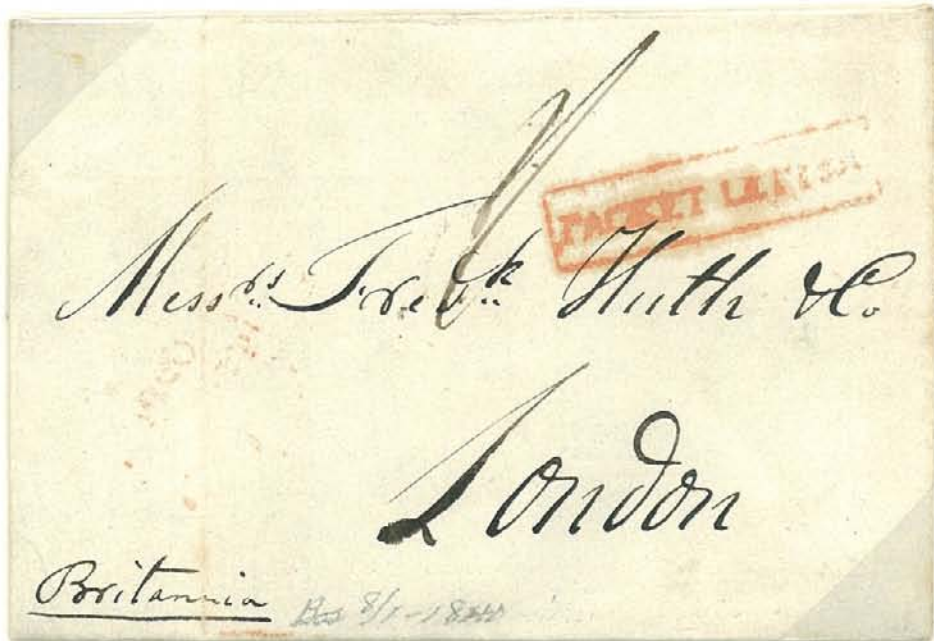 PACKET LETTER
Messrs. Fredk. Huth & Co.
London
Britannia
Bos 8/1-